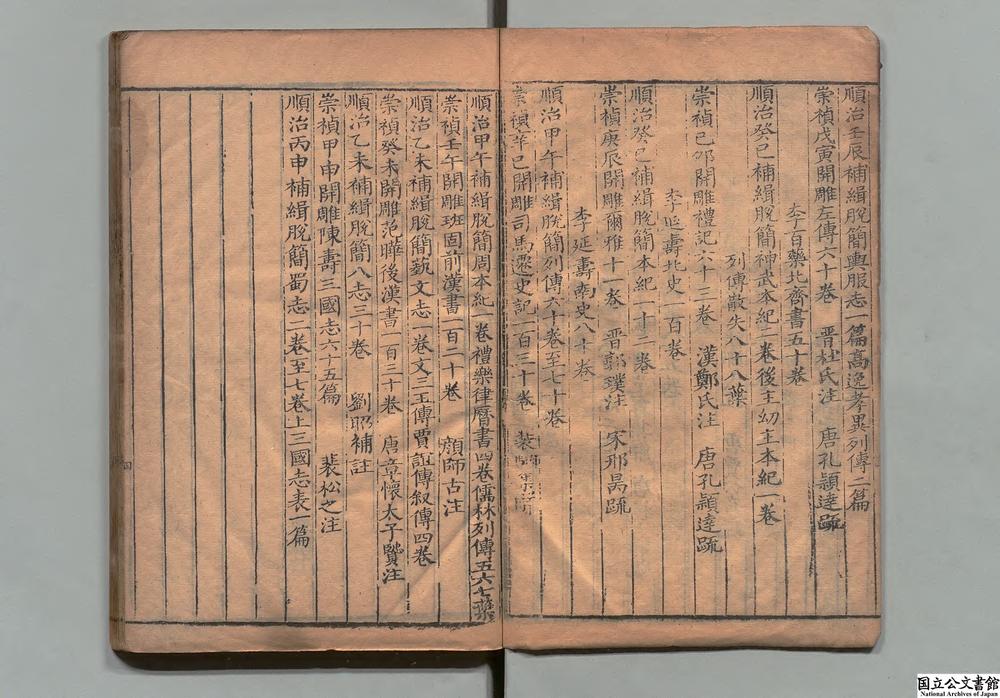 順治壬辰補緝脫簡輿服志一篇高逸孝異列傳二篇
崇禎戊寅開雕左傳六十卷　晋杜氏注　唐孔穎達䟽
李百藥北齊書五十卷
順治癸巳補緝脫簡神武本紀二卷後主幼主本紀一卷
列傳散失八十八葉
崇禎己卯開雕禮記六十三卷　漢鄭氏注　唐孔穎達䟽
李延壽北史一百卷
順治癸巳補緝脫簡本紀一十二卷
崇禎庚辰開雕爾雅十一卷　晋郭璞注　宋邢昺䟽
李延壽南史八十卷
順治甲午補緝脫簡列傳六十卷至七十卷
崇禎辛巳開雕司馬遷史記一百三十卷　裴
順治甲午補緝脫簡周本紀一卷禮樂律曆書四卷儒林列傳五六七葉
崇禎壬午開雕班固前漢書一百二十卷　顏師古注
順治乙未補緝脫簡藝文志一卷文三王傳賈誼傳叙傳四卷
崇禎癸未開雕范曄後漢書一百三十卷　唐章懷太子賢注
順治乙未補緝脫簡八志三十卷　劉昭補註
崇禎甲申開雕陳壽三國志六十五篇　裴松之注
順治丙申補緝脫簡蜀志二卷至七卷上三國志表一篇
国立公文書館
National Archives of Japan